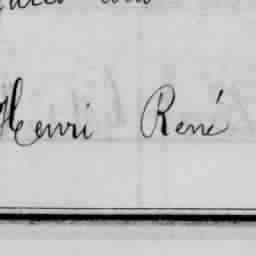 Henri René